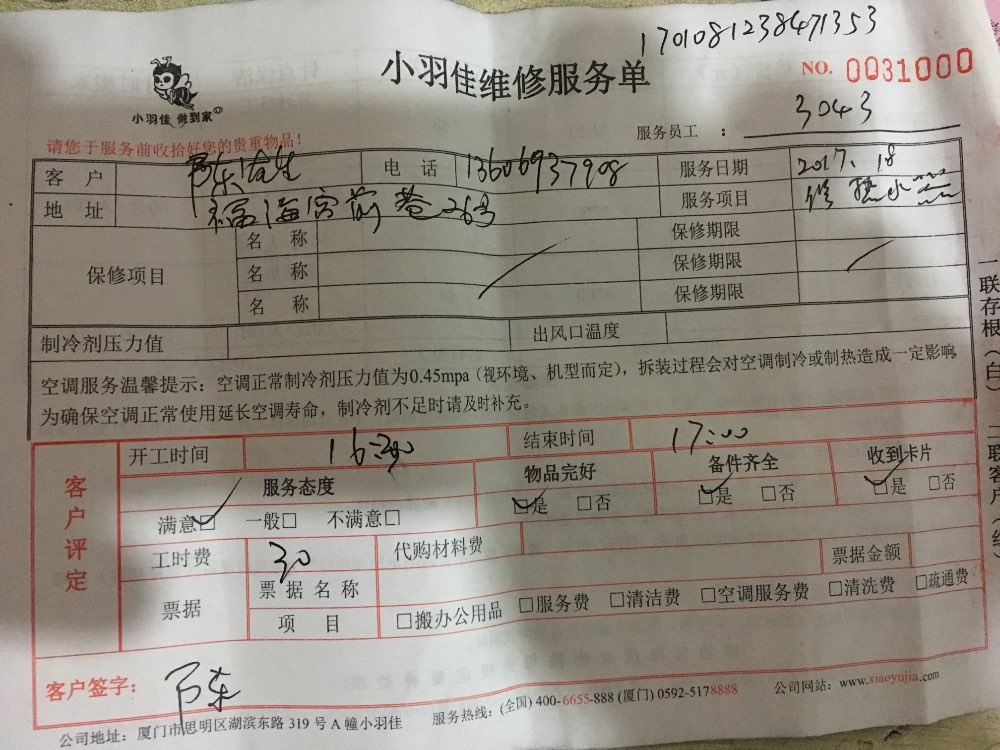 1701081238471353
小羽佳维修服务单
NO. 0031000
小羽佳 做到家
服务员工 : 3043
请您于服务前收拾好您的贵重物品!
客户 陈先生 电话 13606937908 服务日期 2017、18
地址 福海宫前巷26号 服务项目 修热水
保修项目 名称 保修期限
名称 保修期限
名称 保修期限
制冷剂压力值 出风口温度
空调服务温馨提示：空调正常制冷剂压力值为0.45mpa（视环境、机型而定），拆装过程会对空调制冷或制热造成一定影响
为确保空调正常使用延长空调寿命，制冷剂不足时请及时补充。
客户评定
开工时间 16:30 结束时间 17:00
服务态度 物品完好 备件齐全 收到卡片
满意□ 一般□ 不满意□ □是 □否 □是 □否 □是 □否
工时费 30 代购材料费 票据金额
票据 票据名称
项目 □搬办公用品 □服务费 □清洁费 □空调服务费 □清洗费 □疏通费
客户签字： 陈
公司地址：厦门市思明区湖滨东路 319 号 A 幢小羽佳 服务热线：(全国) 400-6655-888 (厦门) 0592-5178888 公司网站：www.xiaoyujia.com
一联存根（白） 二联客户（红）